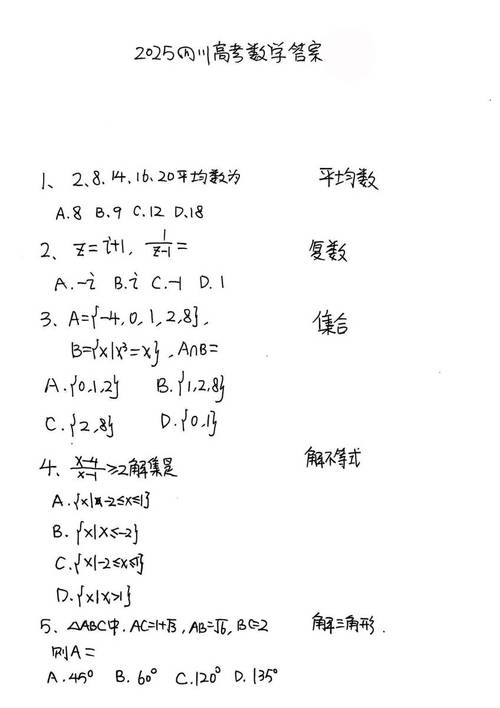 2025四川高考数学答案
1、2、8、14、16、20平均数为 平均数
A.8 B.9 C.12 D.18
2、z=i+1, 1/(z-1)= 复数
A.-i B.i C.-1 D.1
3、A={-4,0,1,2,8}, 集合
B={x|x³=x}, A∩B=
A.{0,1,2} B.{1,2,8}
C.{2,8} D.{0,1}
4、(x-4)/(x-1)≥2解集是 解不等式
A.{x|-2≤x≤1}
B.{x|x≤-2}
C.{x|-2≤x≤1}
D.{x|x>1}
5、△ABC中.AC=1+√3,AB=√6,BC=2 解三角形.
则A=
A.45° B.60° C.120° D.135°